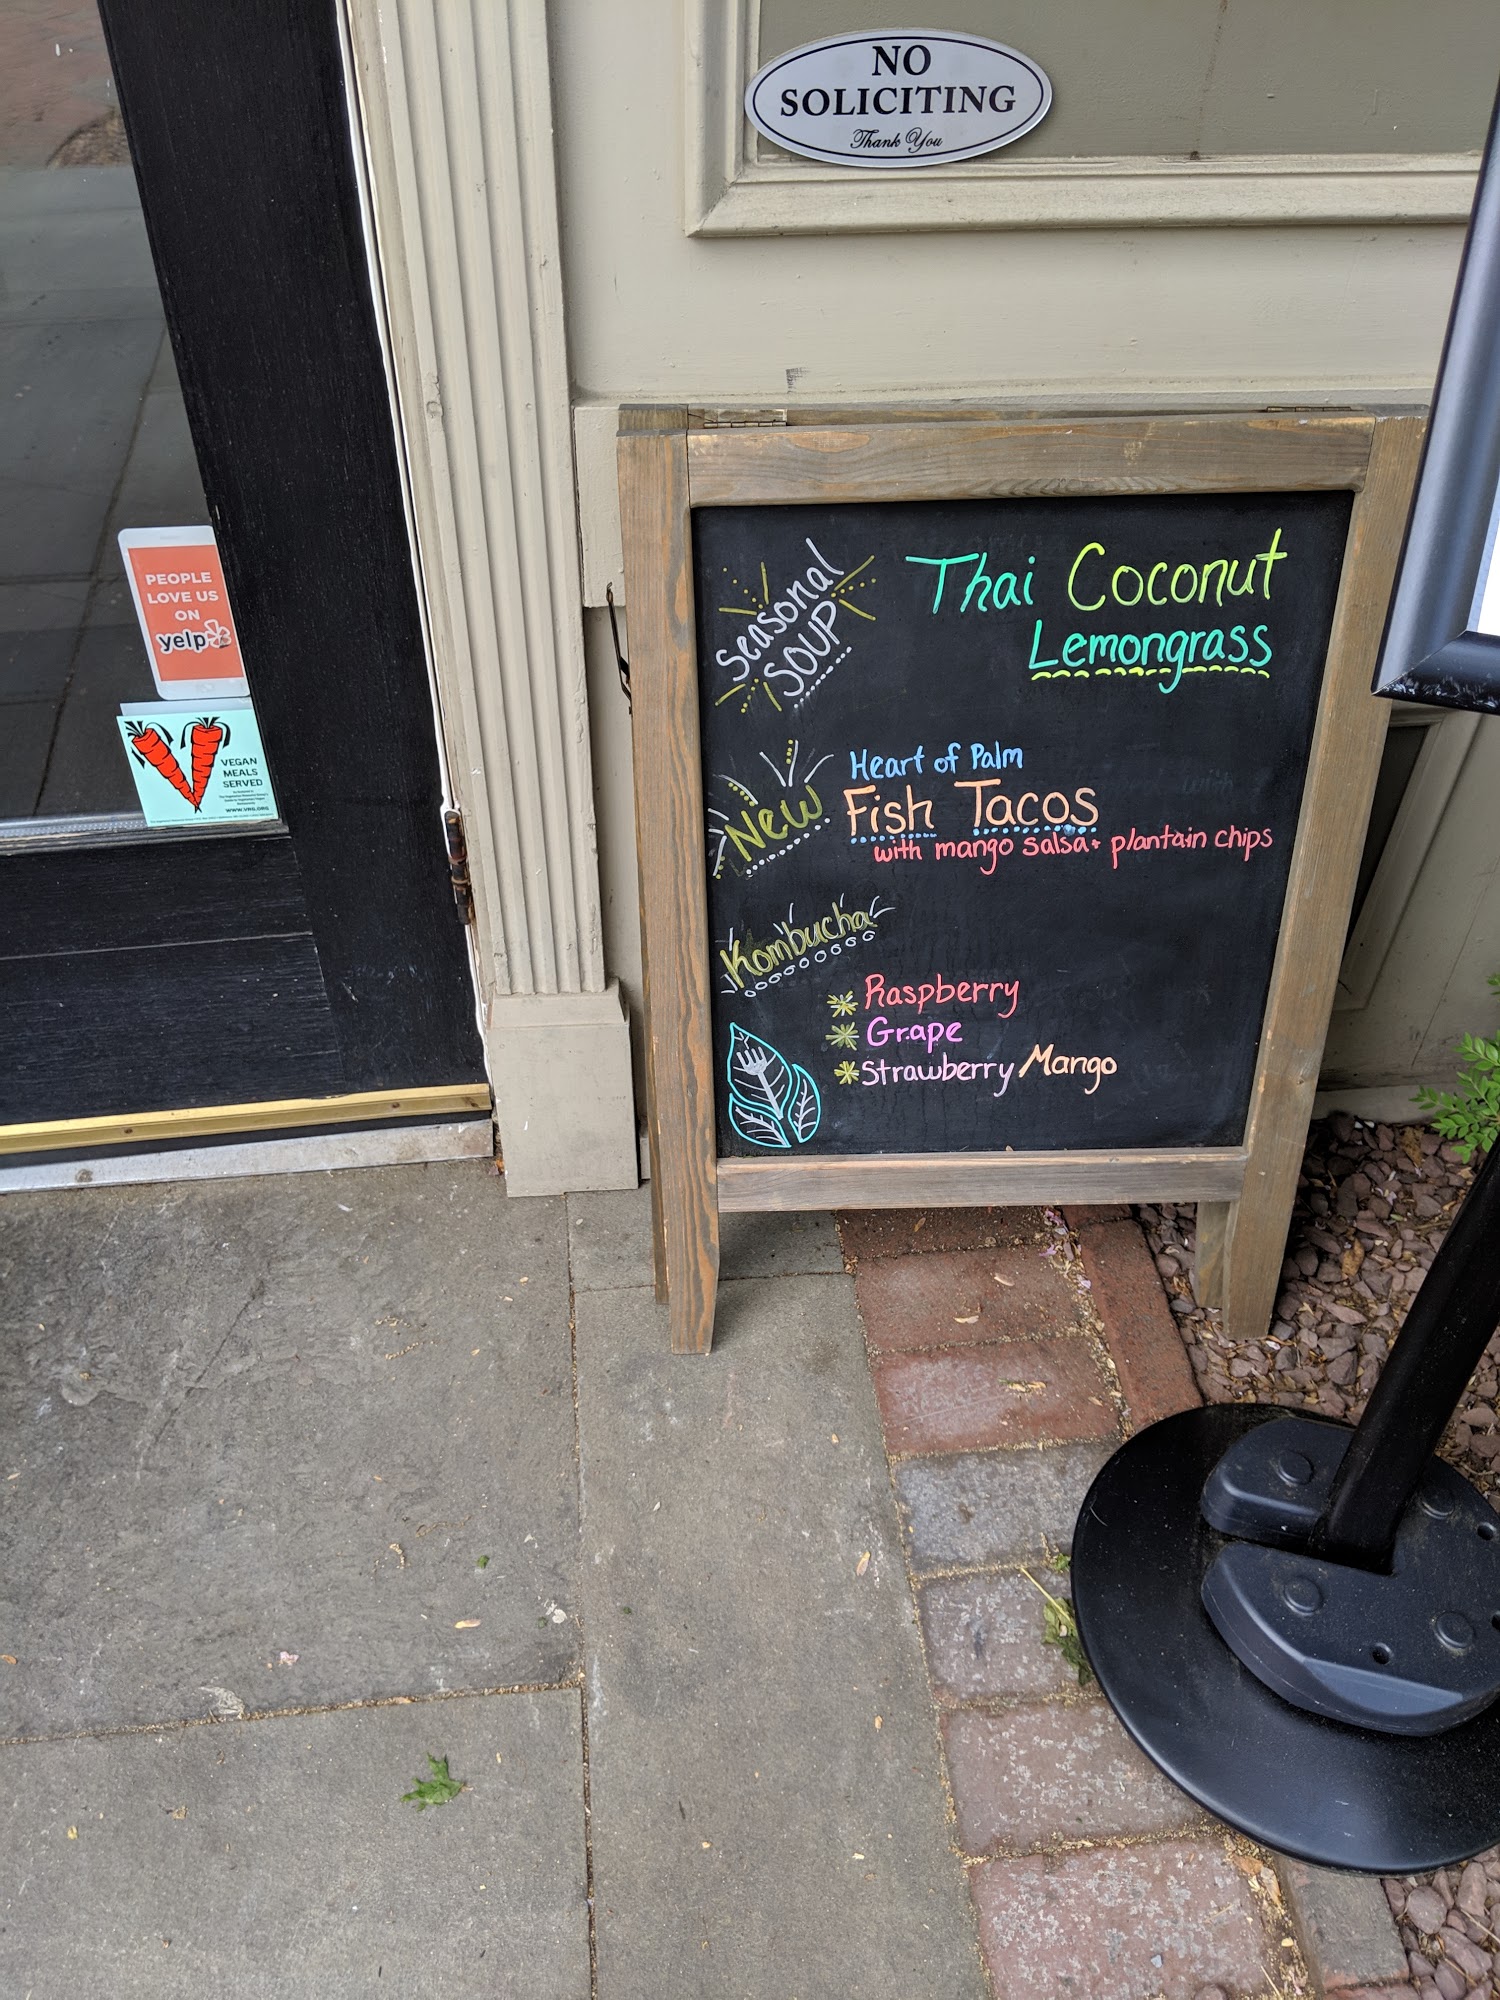 NO
SOLICITING
Thank You
PEOPLE
LOVE US
ON
yelp
VEGAN
MEALS
SERVED
WWW.VRG.ORG
Seasonal
SOUP
Thai Coconut
Lemongrass
New
Heart of Palm
Fish Tacos
with mango salsa + plantain chips
Kombucha
Raspberry
Grape
Strawberry Mango